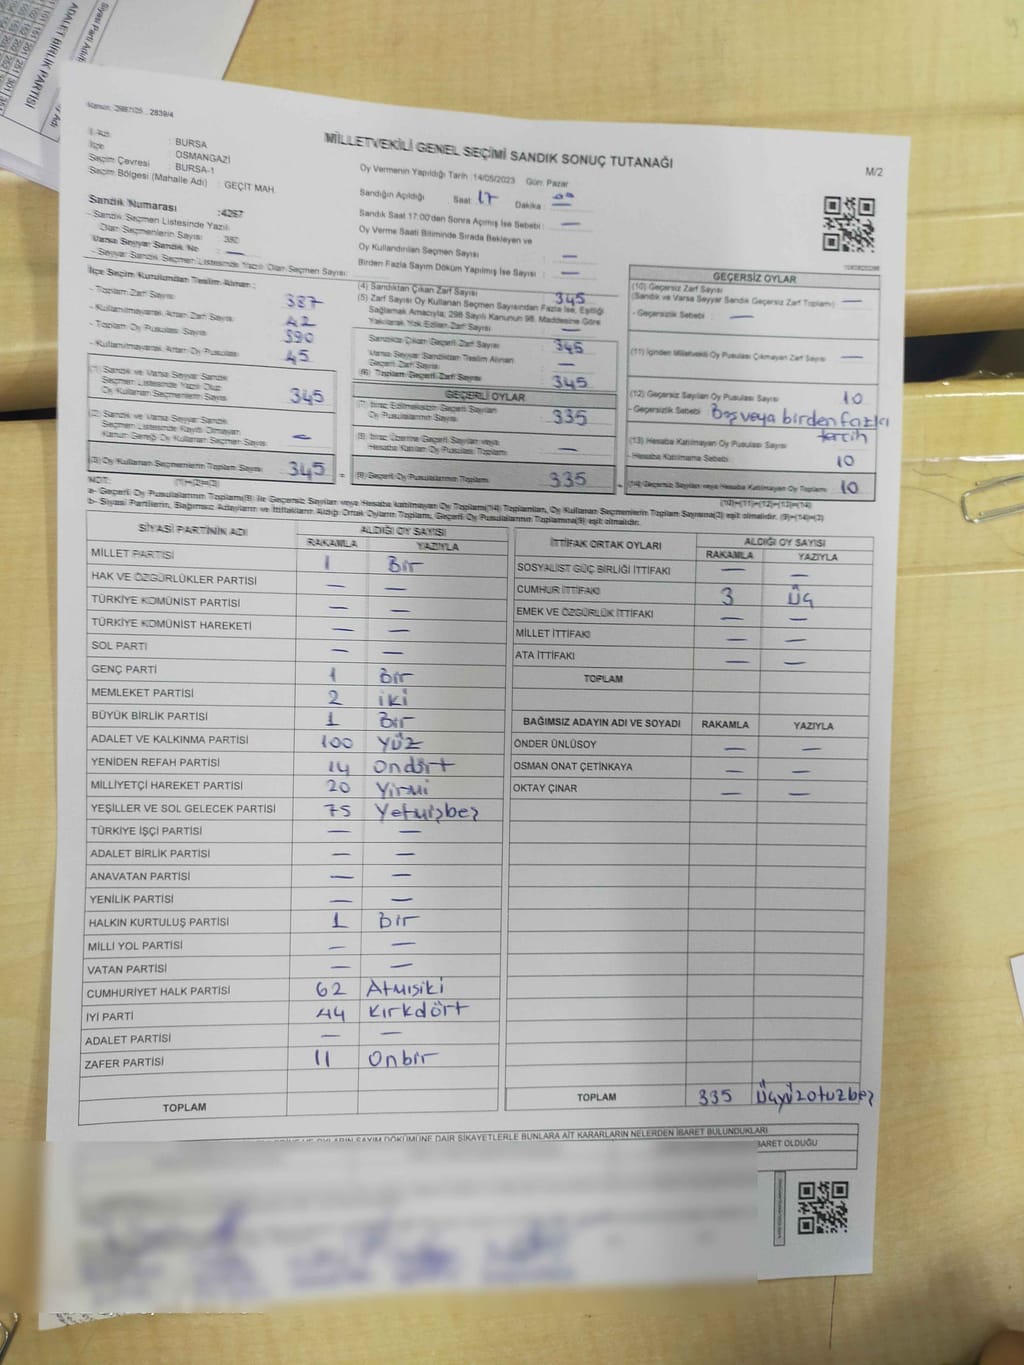 ADALET BİRLİK PARTİSİ
Siyasi Parti Adı
MİLLETVEKİLİ GENEL SEÇİMİ SANDIK SONUÇ TUTANAĞI
M/2
İlçe : BURSA
OSMANGAZİ
Seçim Çevresi : BURSA-1
Seçim Bölgesi (Mahalle Adı) : GEÇİT MAH.
Sandık Numarası : 4267
- Sandık Seçmen Listesinde Yazılı
Olan Seçmenlerin Sayısı :
Varsa Seyyar Sandık No : —
- Seyyar Sandık Seçmen Listesinde Yazılı Olan Seçmen Sayısı:
Oy Vermenin Yapıldığı Tarih :14/05/2023 Gün: Pazar
Sandığın Açıldığı Saat: 17 Dakika :
Sandık Saat 17:00'den Sonra Açılmış İse Sebebi : —
Oy Verme Saati Bitiminde Sırada Bekleyen ve
Oy Kullandırılan Seçmen Sayısı : —
Birden Fazla Sayım Döküm Yapılmış İse Sayısı : —
İlçe Seçim Kurulundan Teslim Alınan :
- Toplam Zarf Sayısı : 387
- Kullanılmayarak Artan Zarf Sayısı : 42
- Toplam Oy Pusulası Sayısı : 390
- Kullanılmayarak Artan Oy Pusulası : 45
(1) Sandık ve Varsa Seyyar Sandık
Seçmen Listesinde Yazılı Olup
Oy Kullanan Seçmenlerin Sayısı : 345
(2) Sandık ve Varsa Seyyar Sandık
Seçmen Listesinde Kayıtlı Olmayan
Kanun Gereği Oy Kullanan Seçmen Sayısı : —
(3) Oy Kullanan Seçmenlerin Toplam Sayısı : 345
(1)+(2)=(3)
(4) Sandıktan Çıkan Zarf Sayısı : 345
(5) Zarf Sayısı Oy Kullanan Seçmen Sayısından Fazla İse, Eşitliği
Sağlamak Amacıyla; 298 Sayılı Kanunun 98. Maddesine Göre
Yakılarak Yok Edilen Zarf Sayısı : —
Sandıkta Çıkan Geçerli Zarf Sayısı : 345
Varsa Seyyar Sandıktan Teslim Alınan
Geçerli Zarf Sayısı : —
(6) Toplam Geçerli Zarf Sayısı : 345
GEÇERLİ OYLAR
(7) İtiraz Edilmeksizin Geçerli Sayılan
Oy Pusulalarının Sayısı : 335
(8) İtiraz Üzerine Geçerli Sayılan veya
Hesaba Katılan Oy Pusulası Toplamı : —
(9) Geçerli Oy Pusulalarının Toplamı : 335
GEÇERSİZ OYLAR
(10) Geçersiz Zarf Sayısı
(Sandık ve Varsa Seyyar Sandık Geçersiz Zarf Toplamı) : —
- Geçersizlik Sebebi : —
(11) İçinden Milletvekili Oy Pusulası Çıkmayan Zarf Sayısı : —
(12) Geçersiz Sayılan Oy Pusulası Sayısı : 10
- Geçersizlik Sebebi : Boş veya birden fazla
tercih
(13) Hesaba Katılmayan Oy Pusulası Sayısı
- Hesaba Katılmama Sebebi: 10
(14) Geçersiz Sayılan veya Hesaba Katılmayan Oy Toplamı : 10
(10)+(11)+(12)+(13)=(14)
NOT:
a- Geçerli Oy Pusulalarının Toplamı(9) ile Geçersiz Sayılan veya Hesaba katılmayan Oy Toplamı(14) Toplamları, Oy Kullanan Seçmenlerin Toplam Sayısına(3) eşit olmalıdır. (9)+(14)=(3)
b- Siyasi Partilerin, Bağımsız Adayların ve İttifakların Aldığı Ortak Oyların Toplamı, Geçerli Oy Pusulalarının Toplamına(9) eşit olmalıdır.
SİYASİ PARTİNİN ADI ALDIĞI OY SAYISI
RAKAMLA YAZIYLA
MİLLET PARTİSİ 1 Bir
HAK VE ÖZGÜRLÜKLER PARTİSİ — —
TÜRKİYE KOMÜNİST PARTİSİ — —
TÜRKİYE KOMÜNİST HAREKETİ — —
SOL PARTİ — —
GENÇ PARTİ 1 Bir
MEMLEKET PARTİSİ 2 iki
BÜYÜK BİRLİK PARTİSİ 1 Bir
ADALET VE KALKINMA PARTİSİ 100 Yüz
YENİDEN REFAH PARTİSİ 14 Ondört
MİLLİYETÇİ HAREKET PARTİSİ 20 Yirmi
YEŞİLLER VE SOL GELECEK PARTİSİ 75 Yetmişbeş
TÜRKİYE İŞÇİ PARTİSİ — —
ADALET BİRLİK PARTİSİ — —
ANAVATAN PARTİSİ — —
YENİLİK PARTİSİ — —
HALKIN KURTULUŞ PARTİSİ 1 Bir
MİLLİ YOL PARTİSİ — —
VATAN PARTİSİ — —
CUMHURİYET HALK PARTİSİ 62 Atmışiki
İYİ PARTİ 44 Kırkdört
ADALET PARTİSİ — —
ZAFER PARTİSİ 11 Onbir
TOPLAM
İTTİFAK ORTAK OYLARI ALDIĞI OY SAYISI
RAKAMLA YAZIYLA
SOSYALİST GÜÇ BİRLİĞİ İTTİFAKI — —
CUMHUR İTTİFAKI 3 Üç
EMEK VE ÖZGÜRLÜK İTTİFAKI — —
MİLLET İTTİFAKI — —
ATA İTTİFAKI — —
TOPLAM
BAĞIMSIZ ADAYIN ADI VE SOYADI RAKAMLA YAZIYLA
ÖNDER ÜNLÜSOY — —
OSMAN ONAT ÇETİNKAYA — —
OKTAY ÇINAR — —
TOPLAM 335 Üçyüzotuzbeş
OYLARIN SAYIM DÖKÜMÜNE DAİR ŞİKAYETLERLE BUNLARA AİT KARARLARIN NELERDEN İBARET BULUNDUKLARI
İBARET OLDUĞU